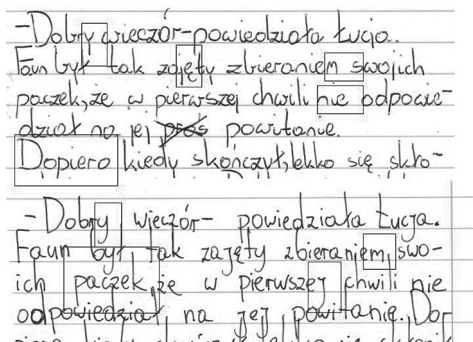 -Dobry wieczór-powiedziała Łucja.
Faun był tak zajęty zbieraniem swoich
paczek, że w pierwszej chwili nie odpowie-
dział na jej powitanie.
Dopiero kiedy skończył, lekko się skło-
-Dobry wieczór- powiedziała Łucja.
Faun był tak zajęty zbieraniem swo-
ich paczek, że w pierwszej chwili nie
odpowiedział, na jej powitanie. Do